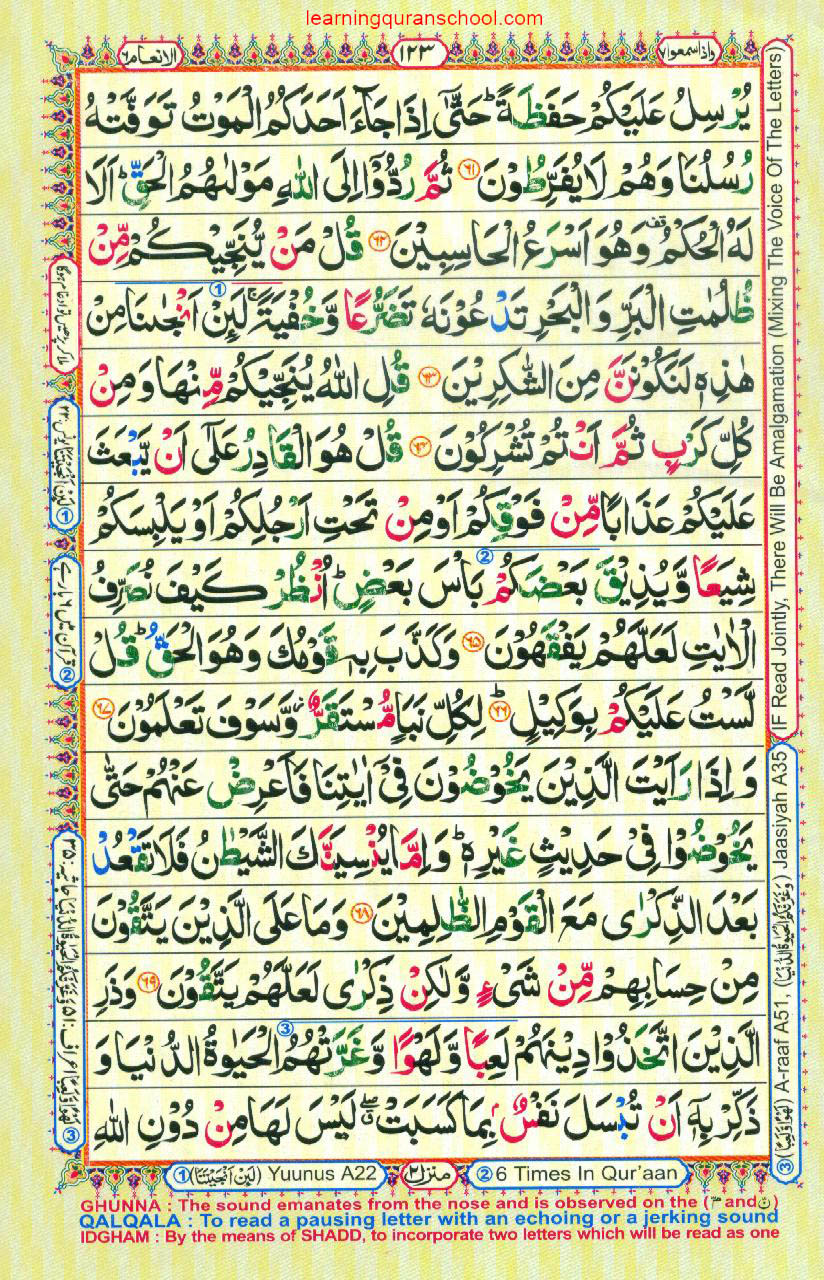 learningquranschool.com
واذاسمعوا٧
١٢٣
الانعام٦
يُرْسِلُ عَلَيْكُمْ حَفَظَةً ؕ حَتّٰۤى اِذَا جَآءَ اَحَدَكُمُ الْمَوْتُ تَوَفَّتْهُ
رُسُلُنَا وَهُمْ لَا يُفَرِّطُوْنَ ﴿٦١﴾ ثُمَّ رُدُّوْۤا اِلَى اللّٰهِ مَوْلٰىهُمُ الْحَقِّ ؕ اَلَا
لَهُ الْحُكْمُ ࣞ وَهُوَ اَسْرَعُ الْحَاسِبِيْنَ ﴿٦٢﴾ قُلْ مَنْ يُّنَجِّيْكُمْ مِّنْ
ظُلُمٰتِ الْبَرِّ وَ الْبَحْرِ تَدْعُوْنَهٗ تَضَرُّعًا وَّخُفْيَةً ۚ لَئِنْ اَنْجٰىنَا مِنْ
هٰذِهٖ لَنَكُوْنَنَّ مِنَ الشّٰكِرِيْنَ ﴿٦٣﴾ قُلِ اللّٰهُ يُنَجِّيْكُمْ مِّنْهَا وَ مِنْ
كُلِّ كَرْبٍ ثُمَّ اَنْتُمْ تُشْرِكُوْنَ ﴿٦٤﴾ قُلْ هُوَ الْقَادِرُ عَلٰۤى اَنْ يَّبْعَثَ
عَلَيْكُمْ عَذَابًا مِّنْ فَوْقِكُمْ اَوْ مِنْ تَحْتِ اَرْجُلِكُمْ اَوْ يَلْبِسَكُمْ
شِيَعًا وَّ يُذِيْقَ بَعْضَكُمْ بَاْسَ بَعْضٍ ؕ اُنْظُرْ كَيْفَ نُصَرِّفُ
الْاٰيٰتِ لَعَلَّهُمْ يَفْقَهُوْنَ ﴿٦٥﴾ وَكَذَّبَ بِهٖ قَوْمُكَ وَهُوَ الْحَقُّ ؕ قُلْ
لَّسْتُ عَلَيْكُمْ بِوَكِيْلٍ ؕ ﴿٦٦﴾ لِكُلِّ نَبَاٍ مُّسْتَقَرٌّ ۫ وَّسَوْفَ تَعْلَمُوْنَ ﴿٦٧﴾
وَ اِذَا رَاَيْتَ الَّذِيْنَ يَخُوْضُوْنَ فِيْۤ اٰيٰتِنَا فَاَعْرِضْ عَنْهُمْ حَتّٰى
يَخُوْضُوْا فِيْ حَدِيْثٍ غَيْرِهٖ ؕ وَ اِمَّا يُنْسِيَنَّكَ الشَّيْطٰنُ فَلَا تَقْعُدْ
بَعْدَ الذِّكْرٰى مَعَ الْقَوْمِ الظّٰلِمِيْنَ ﴿٦٨﴾ وَمَا عَلَى الَّذِيْنَ يَتَّقُوْنَ
مِنْ حِسَابِهِمْ مِّنْ شَيْءٍ وَّلٰكِنْ ذِكْرٰى لَعَلَّهُمْ يَتَّقُوْنَ ﴿٦٩﴾ وَذَرِ
الَّذِيْنَ اتَّخَذُوْا دِيْنَهُمْ لَعِبًا وَّلَهْوًا وَّ غَرَّتْهُمُ الْحَيٰوةُ الدُّنْيَا وَ
ذَكِّرْ بِهٖۤ اَنْ تُبْسَلَ نَفْسٌۢ بِمَا كَسَبَتْ ۖ لَيْسَ لَهَا مِنْ دُوْنِ اللّٰهِ
(IF Read Jointly, There Will Be Amalgamation (Mixing The Voice Of The Letters)
③ (لَهْوًا وَّلَعِبًا) A-raaf A51, (وَغَرَّتْكُمُ الْحَيٰوةُ الدُّنْيَا) Jaasiyah A35
① (لَئِنْ اَنْجَيْتَنَا) Yuunus A22
منزل٢
② 6 Times In Qur'aan
GHUNNA : The sound emanates from the nose and is observed on the (مّ and نّ)
QALQALA : To read a pausing letter with an echoing or a jerking sound
IDGHAM : By the means of SHADD, to incorporate two letters which will be read as one